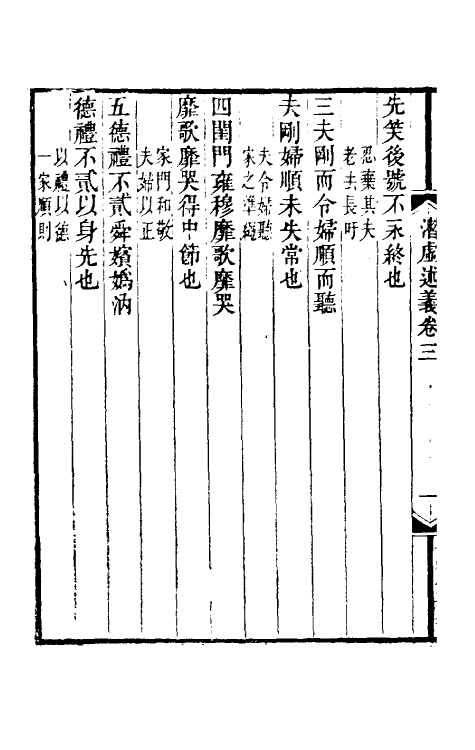 潛虛述義卷三
先笑後號不永終也
忍棄其夫
老去長吁
三夫剛而令婦順而聽
夫剛婦順未失常也
夫令婦聽
家之準繩
四閨門雍穆靡歌靡哭
靡歌靡哭得中節也
家門和敬
夫婦以正
五德禮不貳舜嬪媯汭
德禮不貳以身先也
以禮以德
一家順則